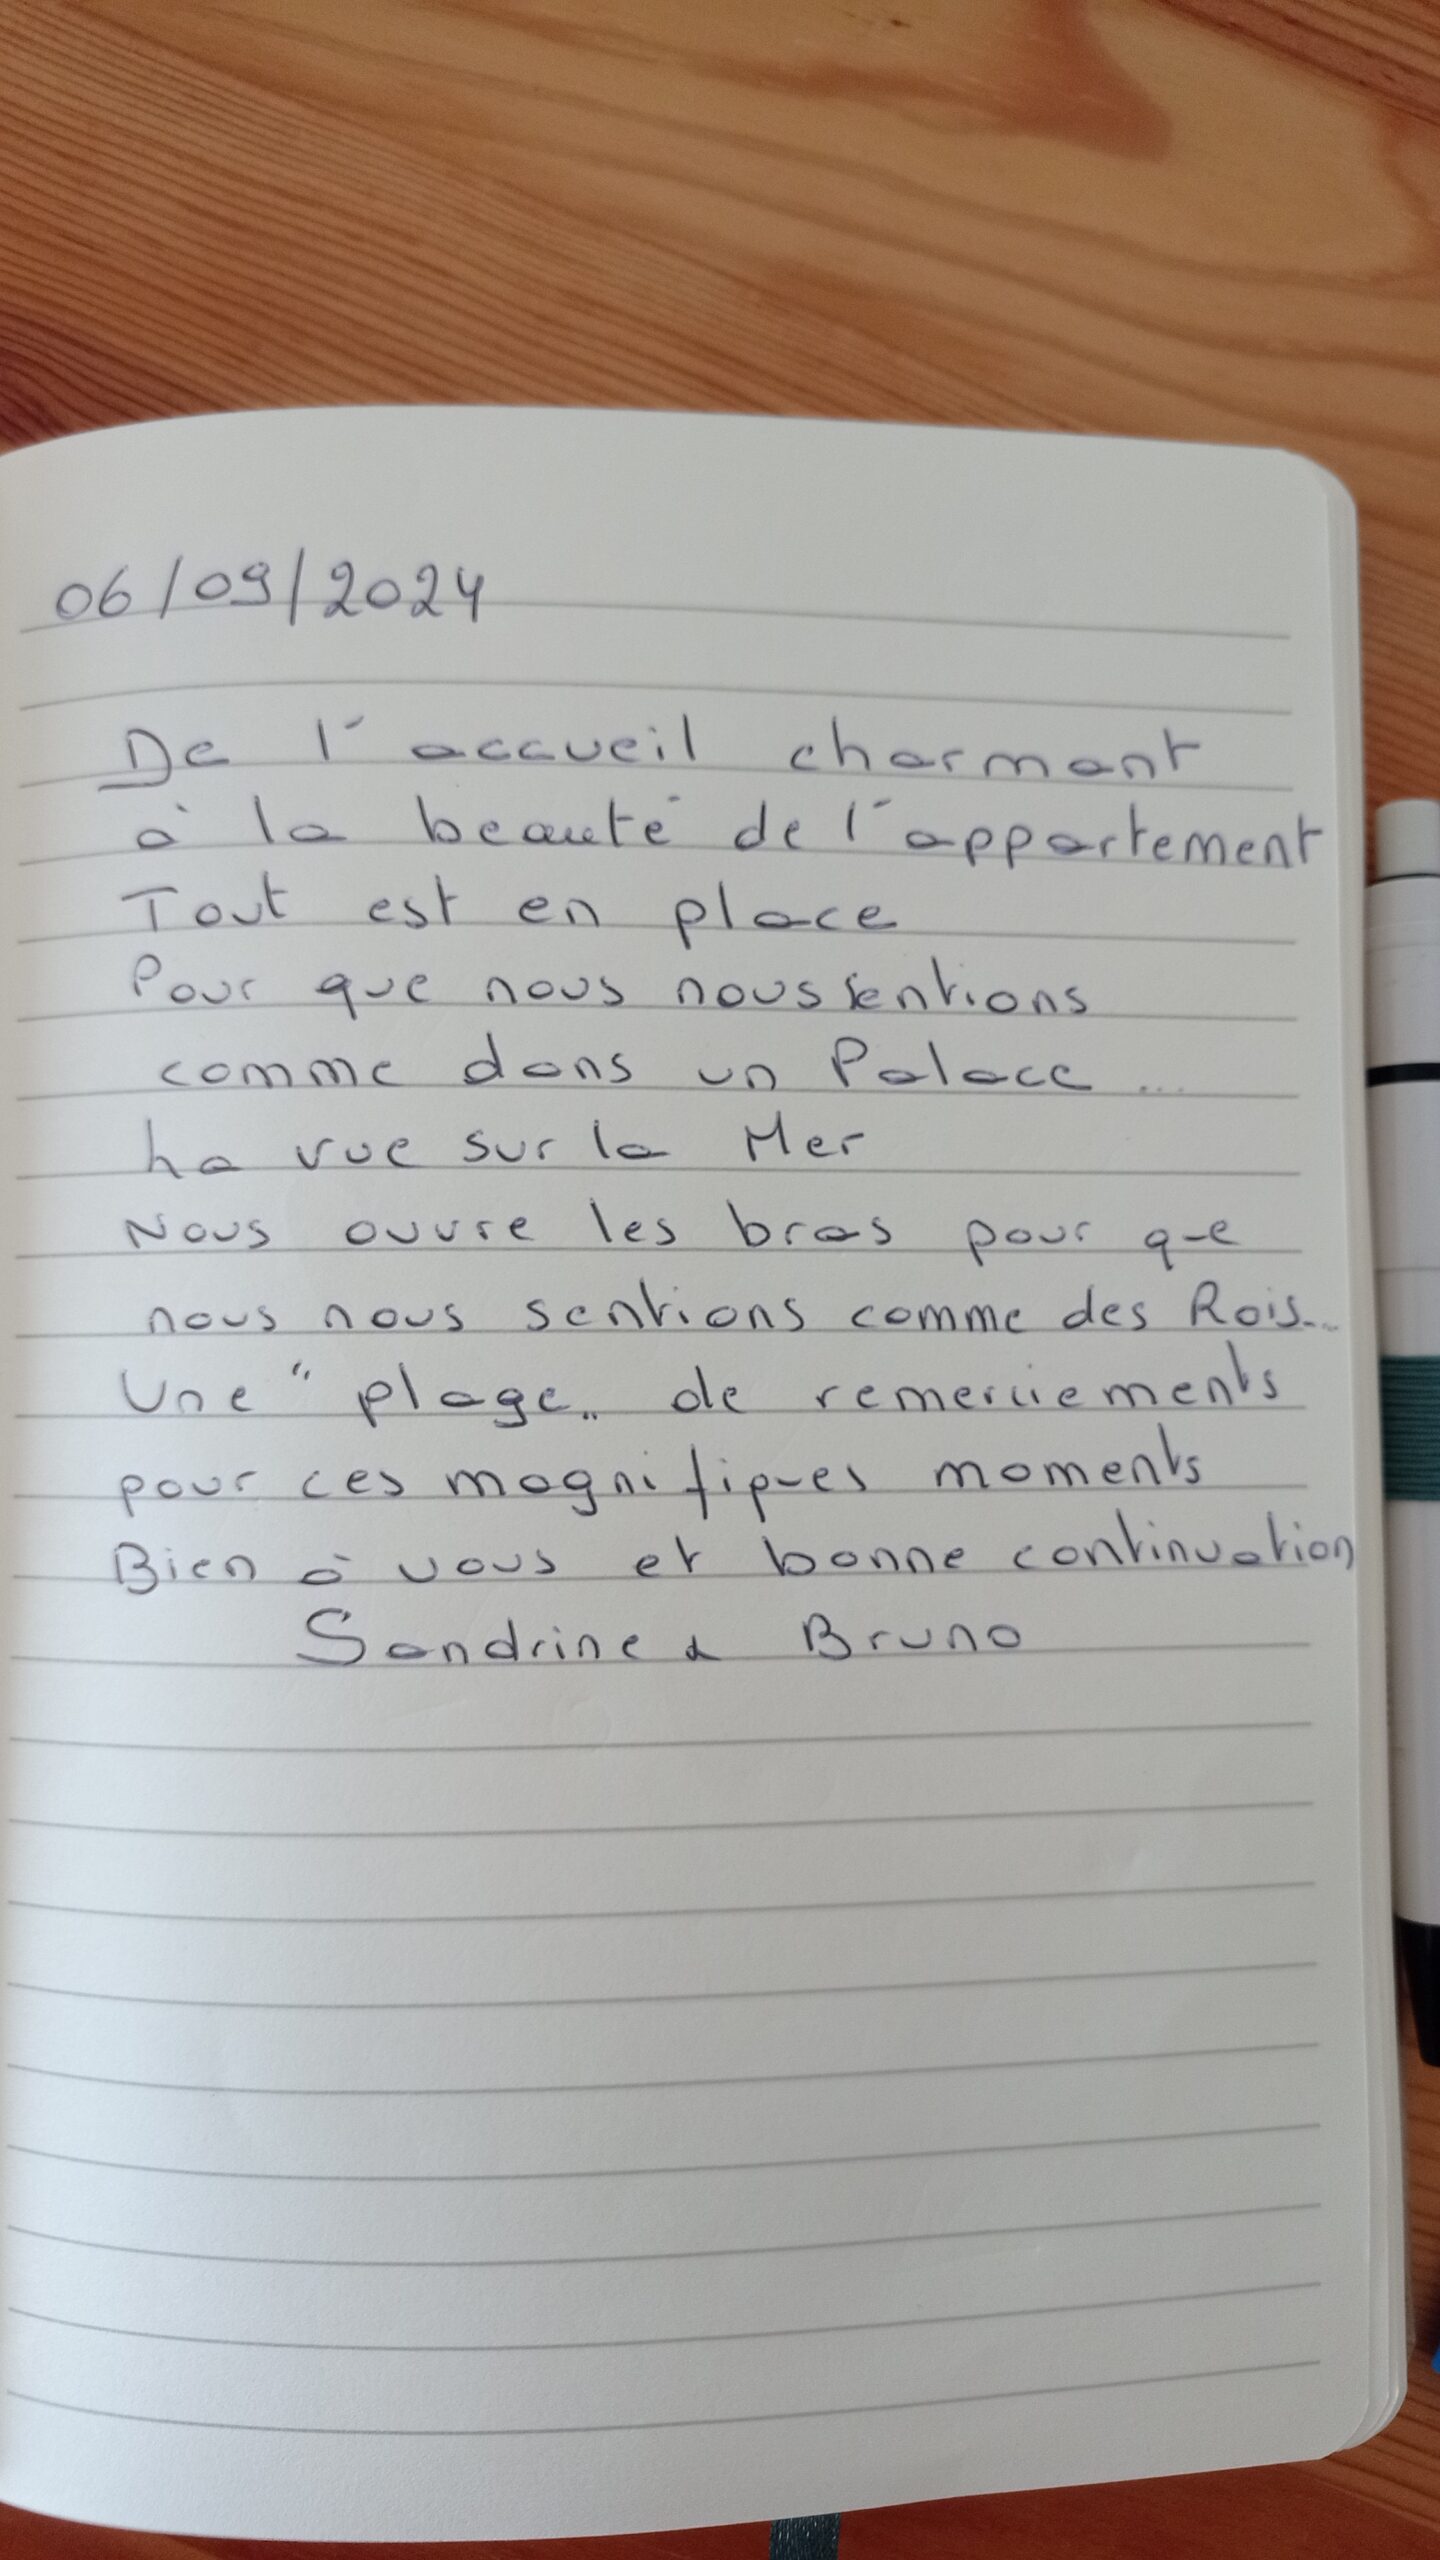 06/09/2024
De l'accueil charmant
à la beauté de l'appartement
Tout est en place
Pour que nous nous sentions
comme dans un Palace ...
La vue sur la Mer
Nous ouvre les bras pour que
nous nous sentions comme des Rois...
Une "plage" de remerciements
pour ces magnifiques moments
Bien à vous et bonne continuation
Sandrine & Bruno